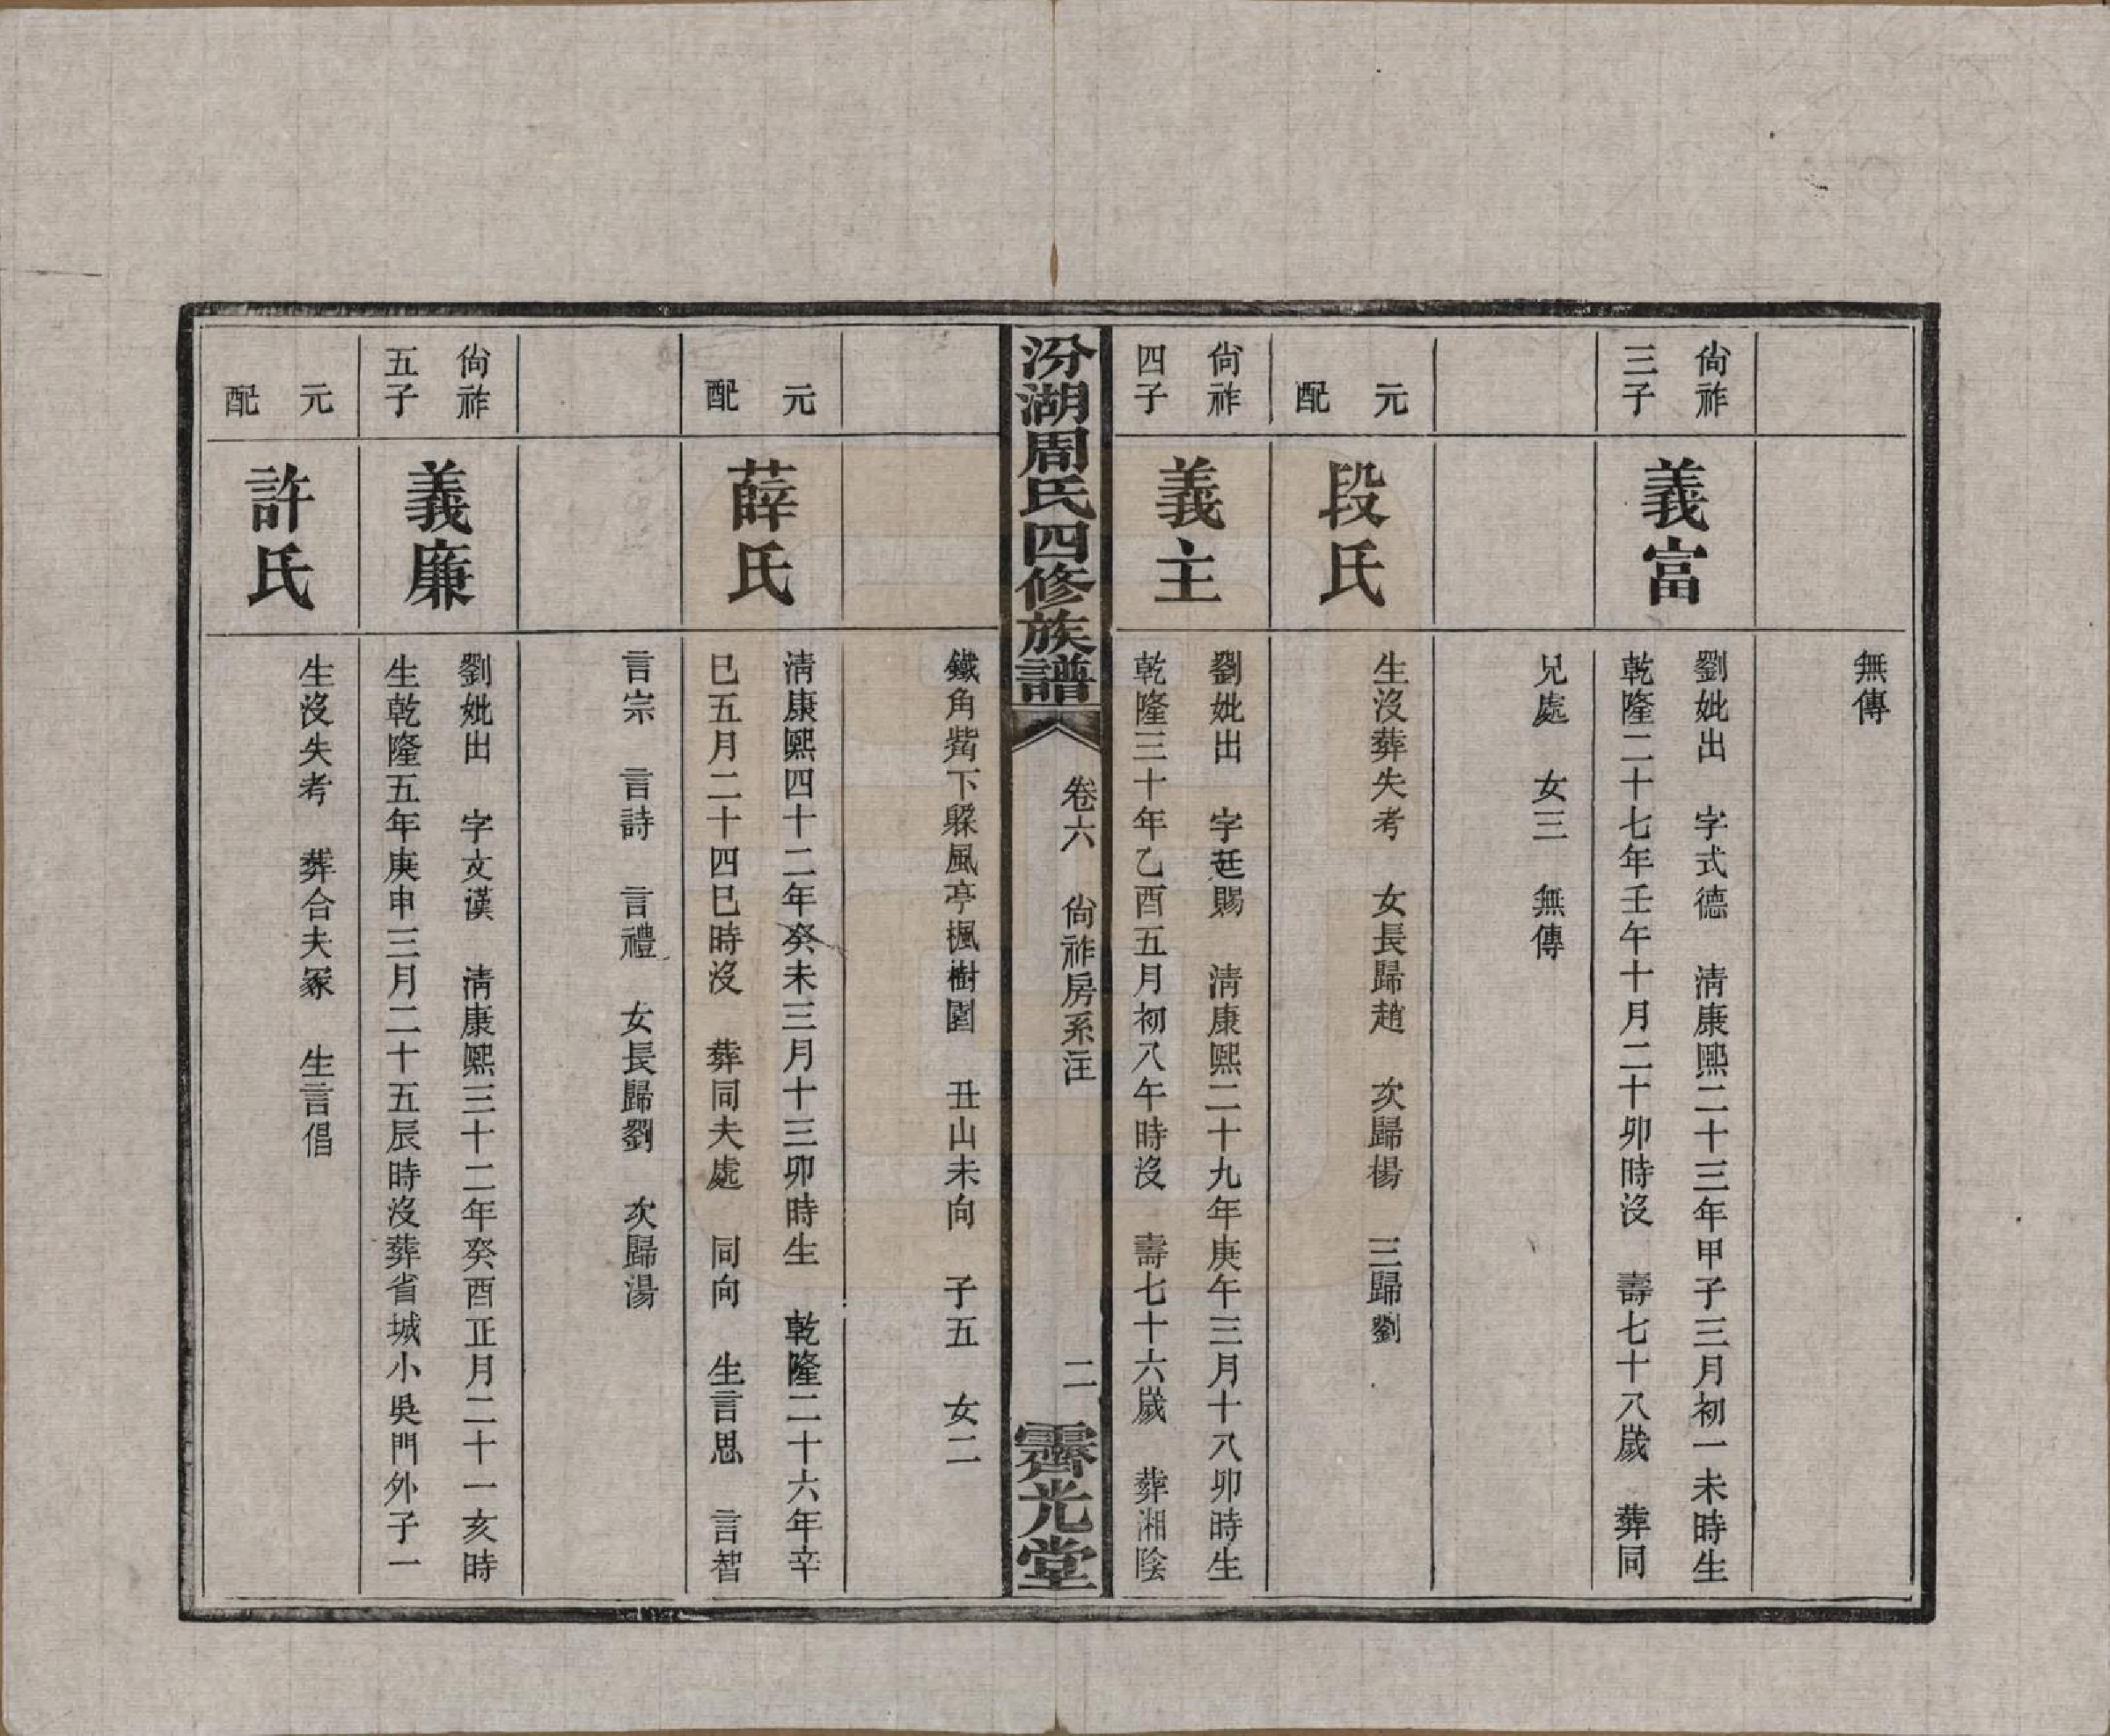 無傳
尙祚
三子
義富
劉妣出　字式德　淸康熙二十三年甲子三月初一未時生
乾隆二十七年壬午十月二十卯時沒　壽七十八歲　葬同
兄處　女三　無傳
元
配
段氏
生沒葬失考　女長歸趙　次歸楊　三歸劉
尙祚
四子
義主
劉妣出　字廷賜　淸康熙二十九年庚午三月十八卯時生
乾隆三十年乙酉五月初八午時沒　壽七十六歲　葬湘陰
汾湖周氏四修族譜
卷六　尙祚房系注
二
霽光堂
鐵角觜下躲風亭楓樹園　丑山未向　子五　女二
元
配
薛氏
淸康熙四十二年癸未三月十三卯時生　乾隆二十六年辛
巳五月二十四巳時沒　葬同夫處　同向　生言思　言智
言宗　言詩　言禮　女長歸劉　次歸湯
尙祚
五子
義廉
劉妣出　字文漢　淸康熙三十二年癸酉正月二十一亥時
生乾隆五年庚申三月二十五辰時沒葬省城小吳門外子一
元
配
許氏
生沒失考　葬合夫冢　生言倡